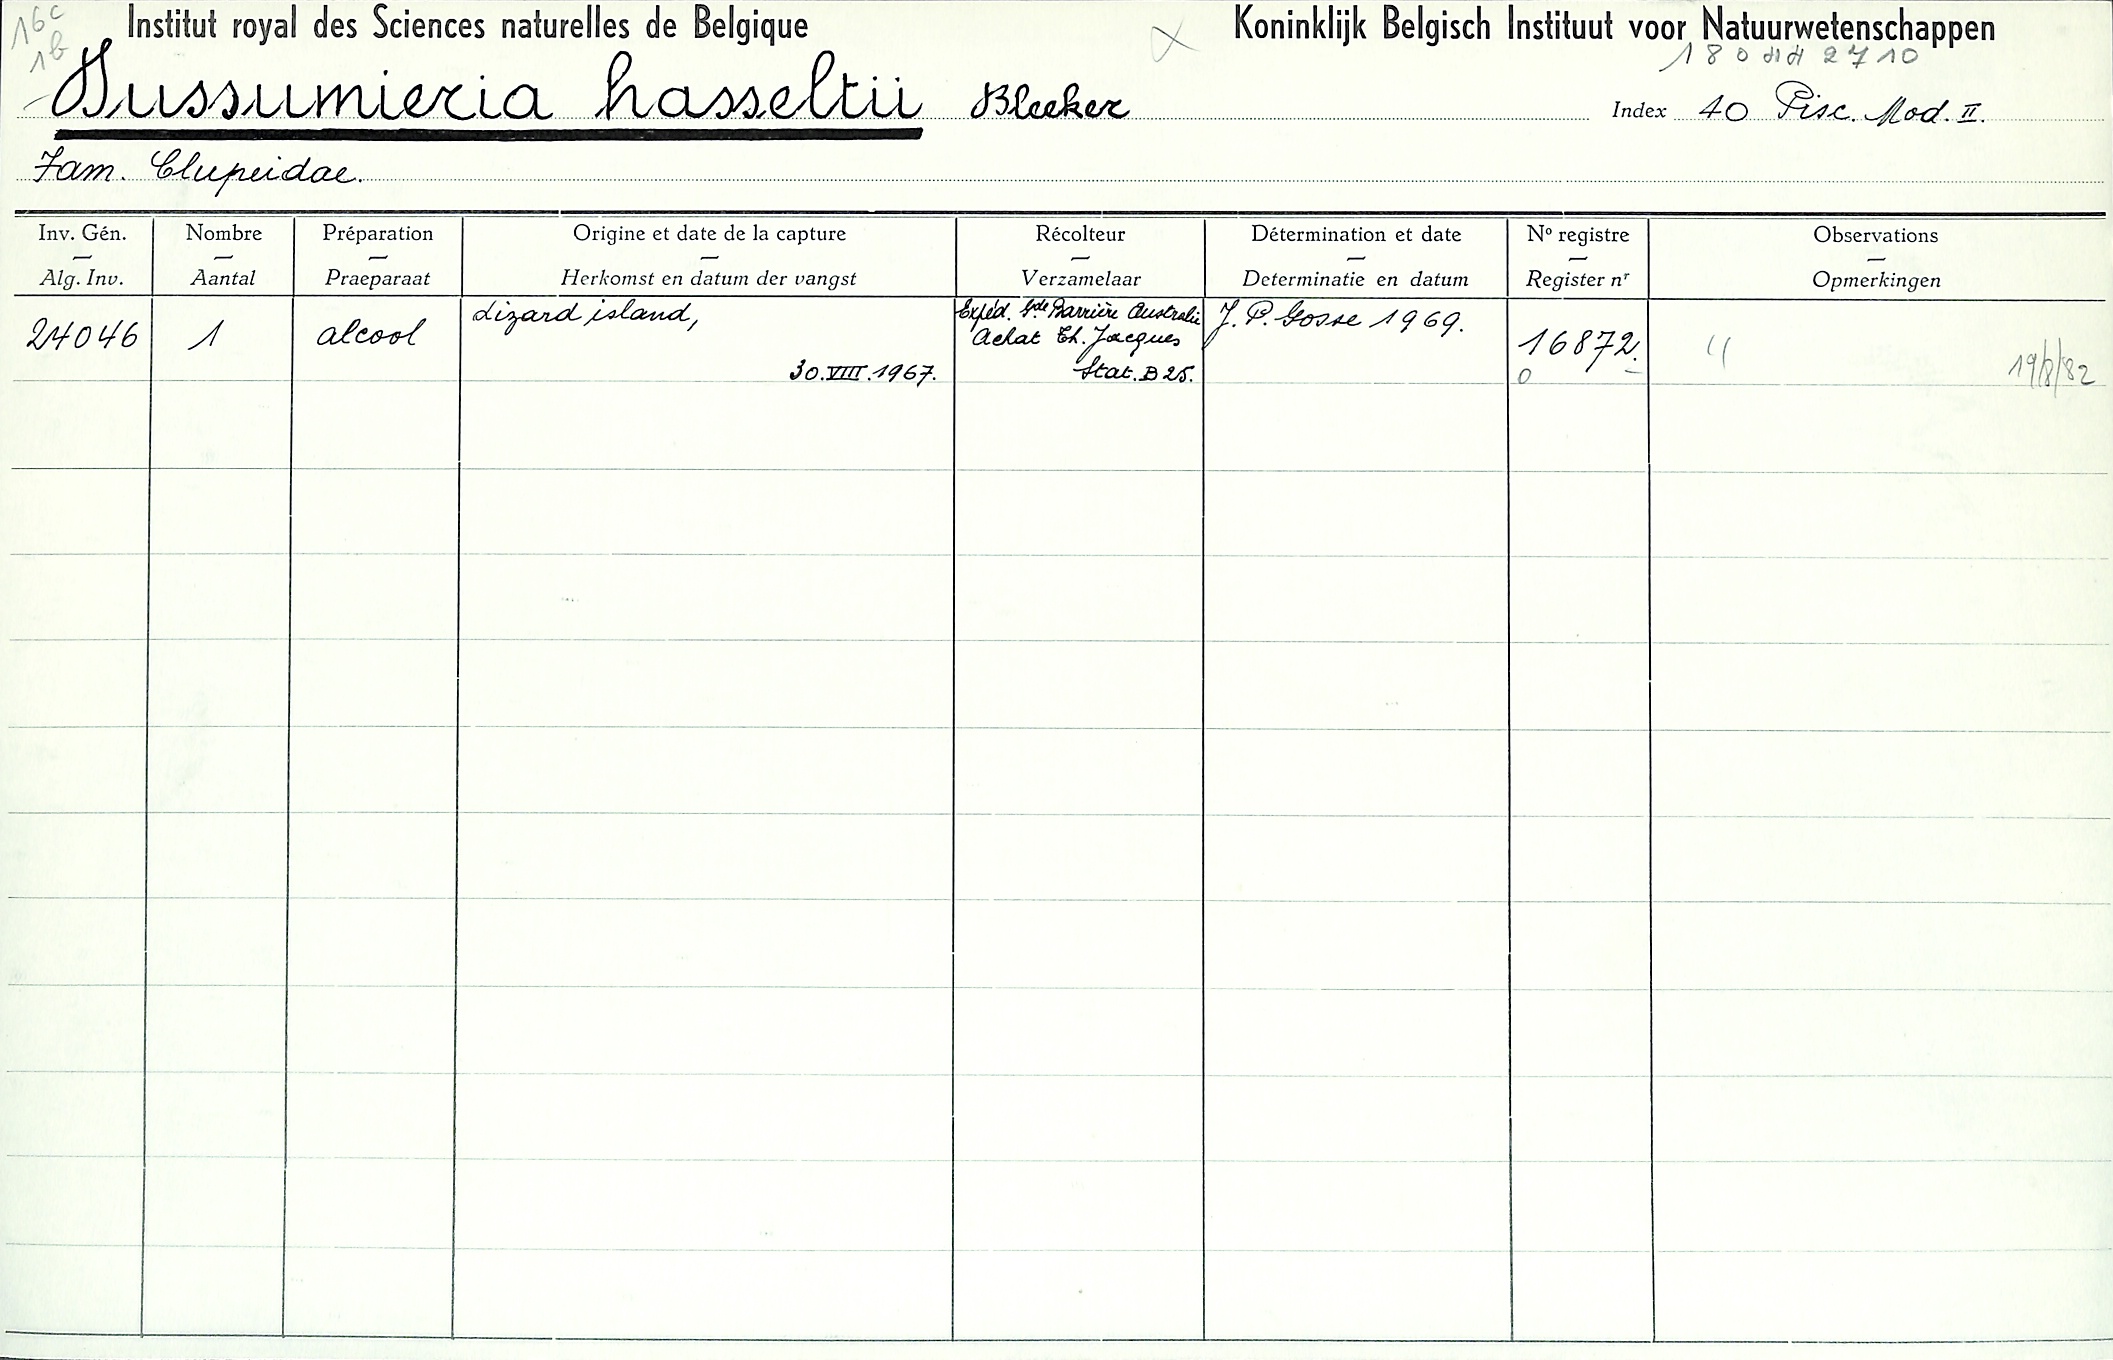 16c
1b
Institut royal des Sciences naturelles de Belgique
Koninklijk Belgisch Instituut voor Natuurwetenschappen
Dussumieria hasseltii Bleeker
Index 40 Pisc. Mod. II.
Fam. Clupeidae.
Inv. Gén. — Alg. Inv.
Nombre — Aantal
Préparation — Praeparaat
Origine et date de la capture — Herkomst en datum der vangst
Récolteur — Verzamelaar
Détermination et date — Determinatie en datum
Nº registre — Register nr
Observations — Opmerkingen
24046
1
alcool
Lizard island,
30.VIII.1967.
Expéd. Gde Barrière Australie
Achat Th. Jacques
Stat. B 25.
J. P. Gosse 1969.
16872.
0
19/8/82